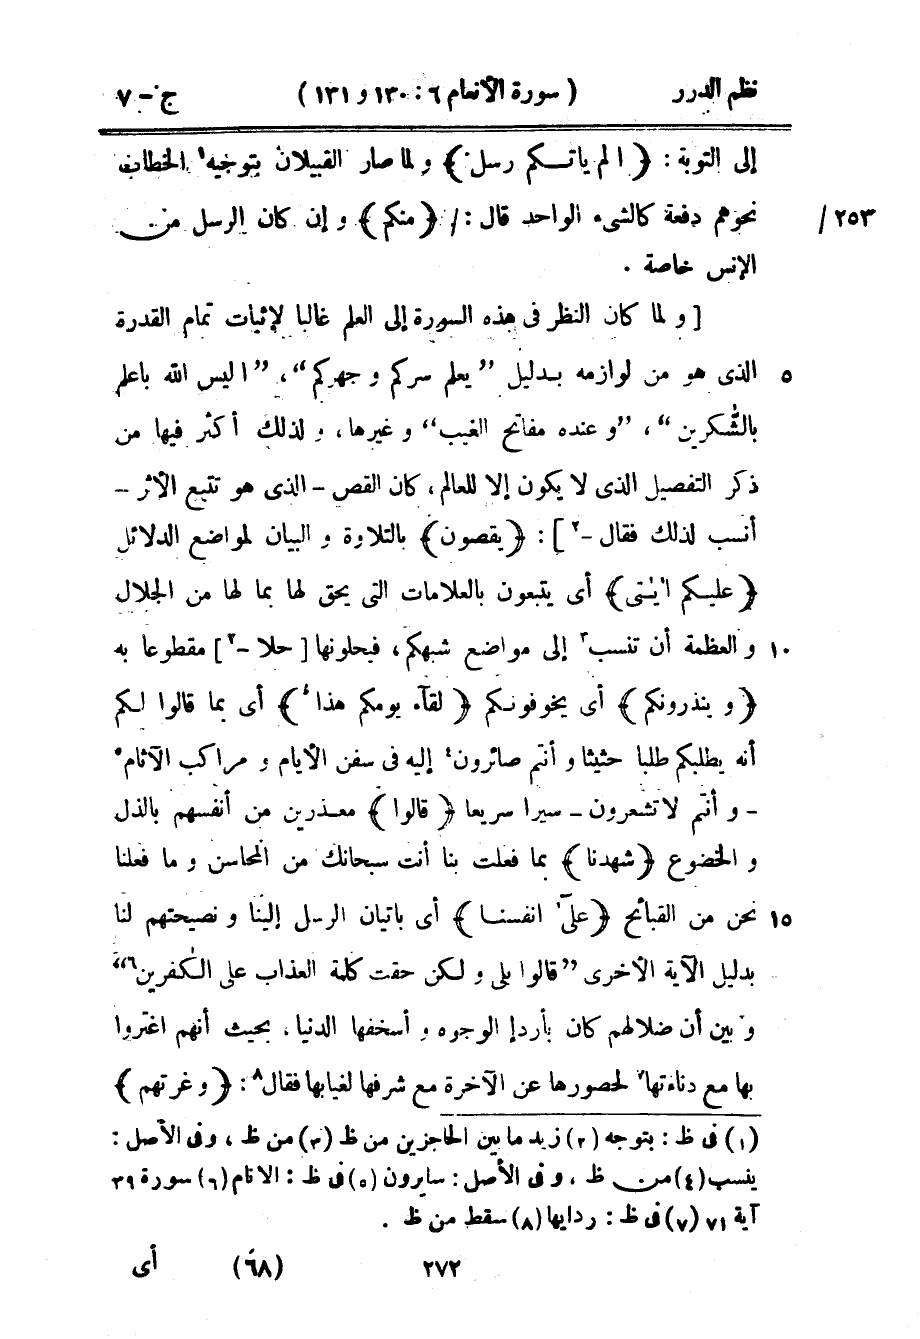 نظم الدرر ( سورة الأنعام ٦ : ١٣٠ و ١٣١ ) ج - ٧
إلى التوبة : ﴿ الم ياتكم رسل ﴾ و لما صار القبيلان بتوجيه١ الخطاب
نحوهم دفعة كالشىء الواحد قال : / ﴿ منكم ﴾ و إن كان الرسل من / ٢٥٣
الإنس خاصة .
[ و لما كان النظر فى هذه السورة إلى العلم غالبا لإثبات تمام القدرة
الذى هو من لوازمه بدليل ” يعلم سركم و جهركم “ ، ” اليس الله باعلم ٥
بالشّٰكرين “ ، ” و عنده مفاتح الغيب “ و غيرها ، و لذلك أكثر فيها من
ذكر التفصيل الذى لا يكون إلا للعالم ، كان القص - الذى هو تتبع الأثر -
أنسب لذلك فقال -٢ ] : ﴿ يقصون ﴾ بالتلاوة و البيان لمواضع الدلائل
﴿ عليكم اٰيٰتى ﴾ أى يتبعون بالعلامات التى يحق لها بما لها من الجلال
و العظمة أن تنسب٣ إلى مواضع شبهكم ، فيحلونها [ حلا -٢ ] مقطوعا به ١٠
﴿ و ينذرونكم ﴾ أى يخوفونكم ﴿ لقآء يومكم هذا ﴾ أى بما قالوا لكم
أنه يطلبكم طلبا حثيثا و أنتم صائرون٤ إليه فى سفن الأيام و مراكب الآثام٥
- و أنتم لا تشعرون - سيرا سريعا ﴿ قالوا ﴾ معذرين من أنفسهم بالذل
و الخضوع ﴿ شهدنا ﴾ بما فعلت بنا أنت سبحانك من المحاسن و ما فعلنا
نحن من القبائح ﴿ علىٓ انفسنا ﴾ أى باتيان الرسل إلينا و نصيحتهم لنا ١٥
بدليل الآية الأخرى ” قالوا بلى و لكن حقت كلمة العذاب على الكٰفرين٦ “
و بين أن ضلالهم كان بأردإ الوجوه و أسخفها الدنيا ، بحيث أنهم اغتروا
بها مع دناءتها٧ لحصورها عن الآخرة مع شرفها لغيابها فقال٨ : ﴿ و غرتهم ﴾
(١) فى ظ : بتوجه (٢) زيد ما بين الحاجزين من ظ (٣) من ظ ، وفى الأصل :
ينسب (٤) من ظ ، وفى الأصل : سايرون (٥) فى ظ : الانام (٦) سورة ٣٩
آية ٧١ (٧) فى ظ : ردايها (٨) سقط من ظ .
٢٧٢ (٦٨) أى